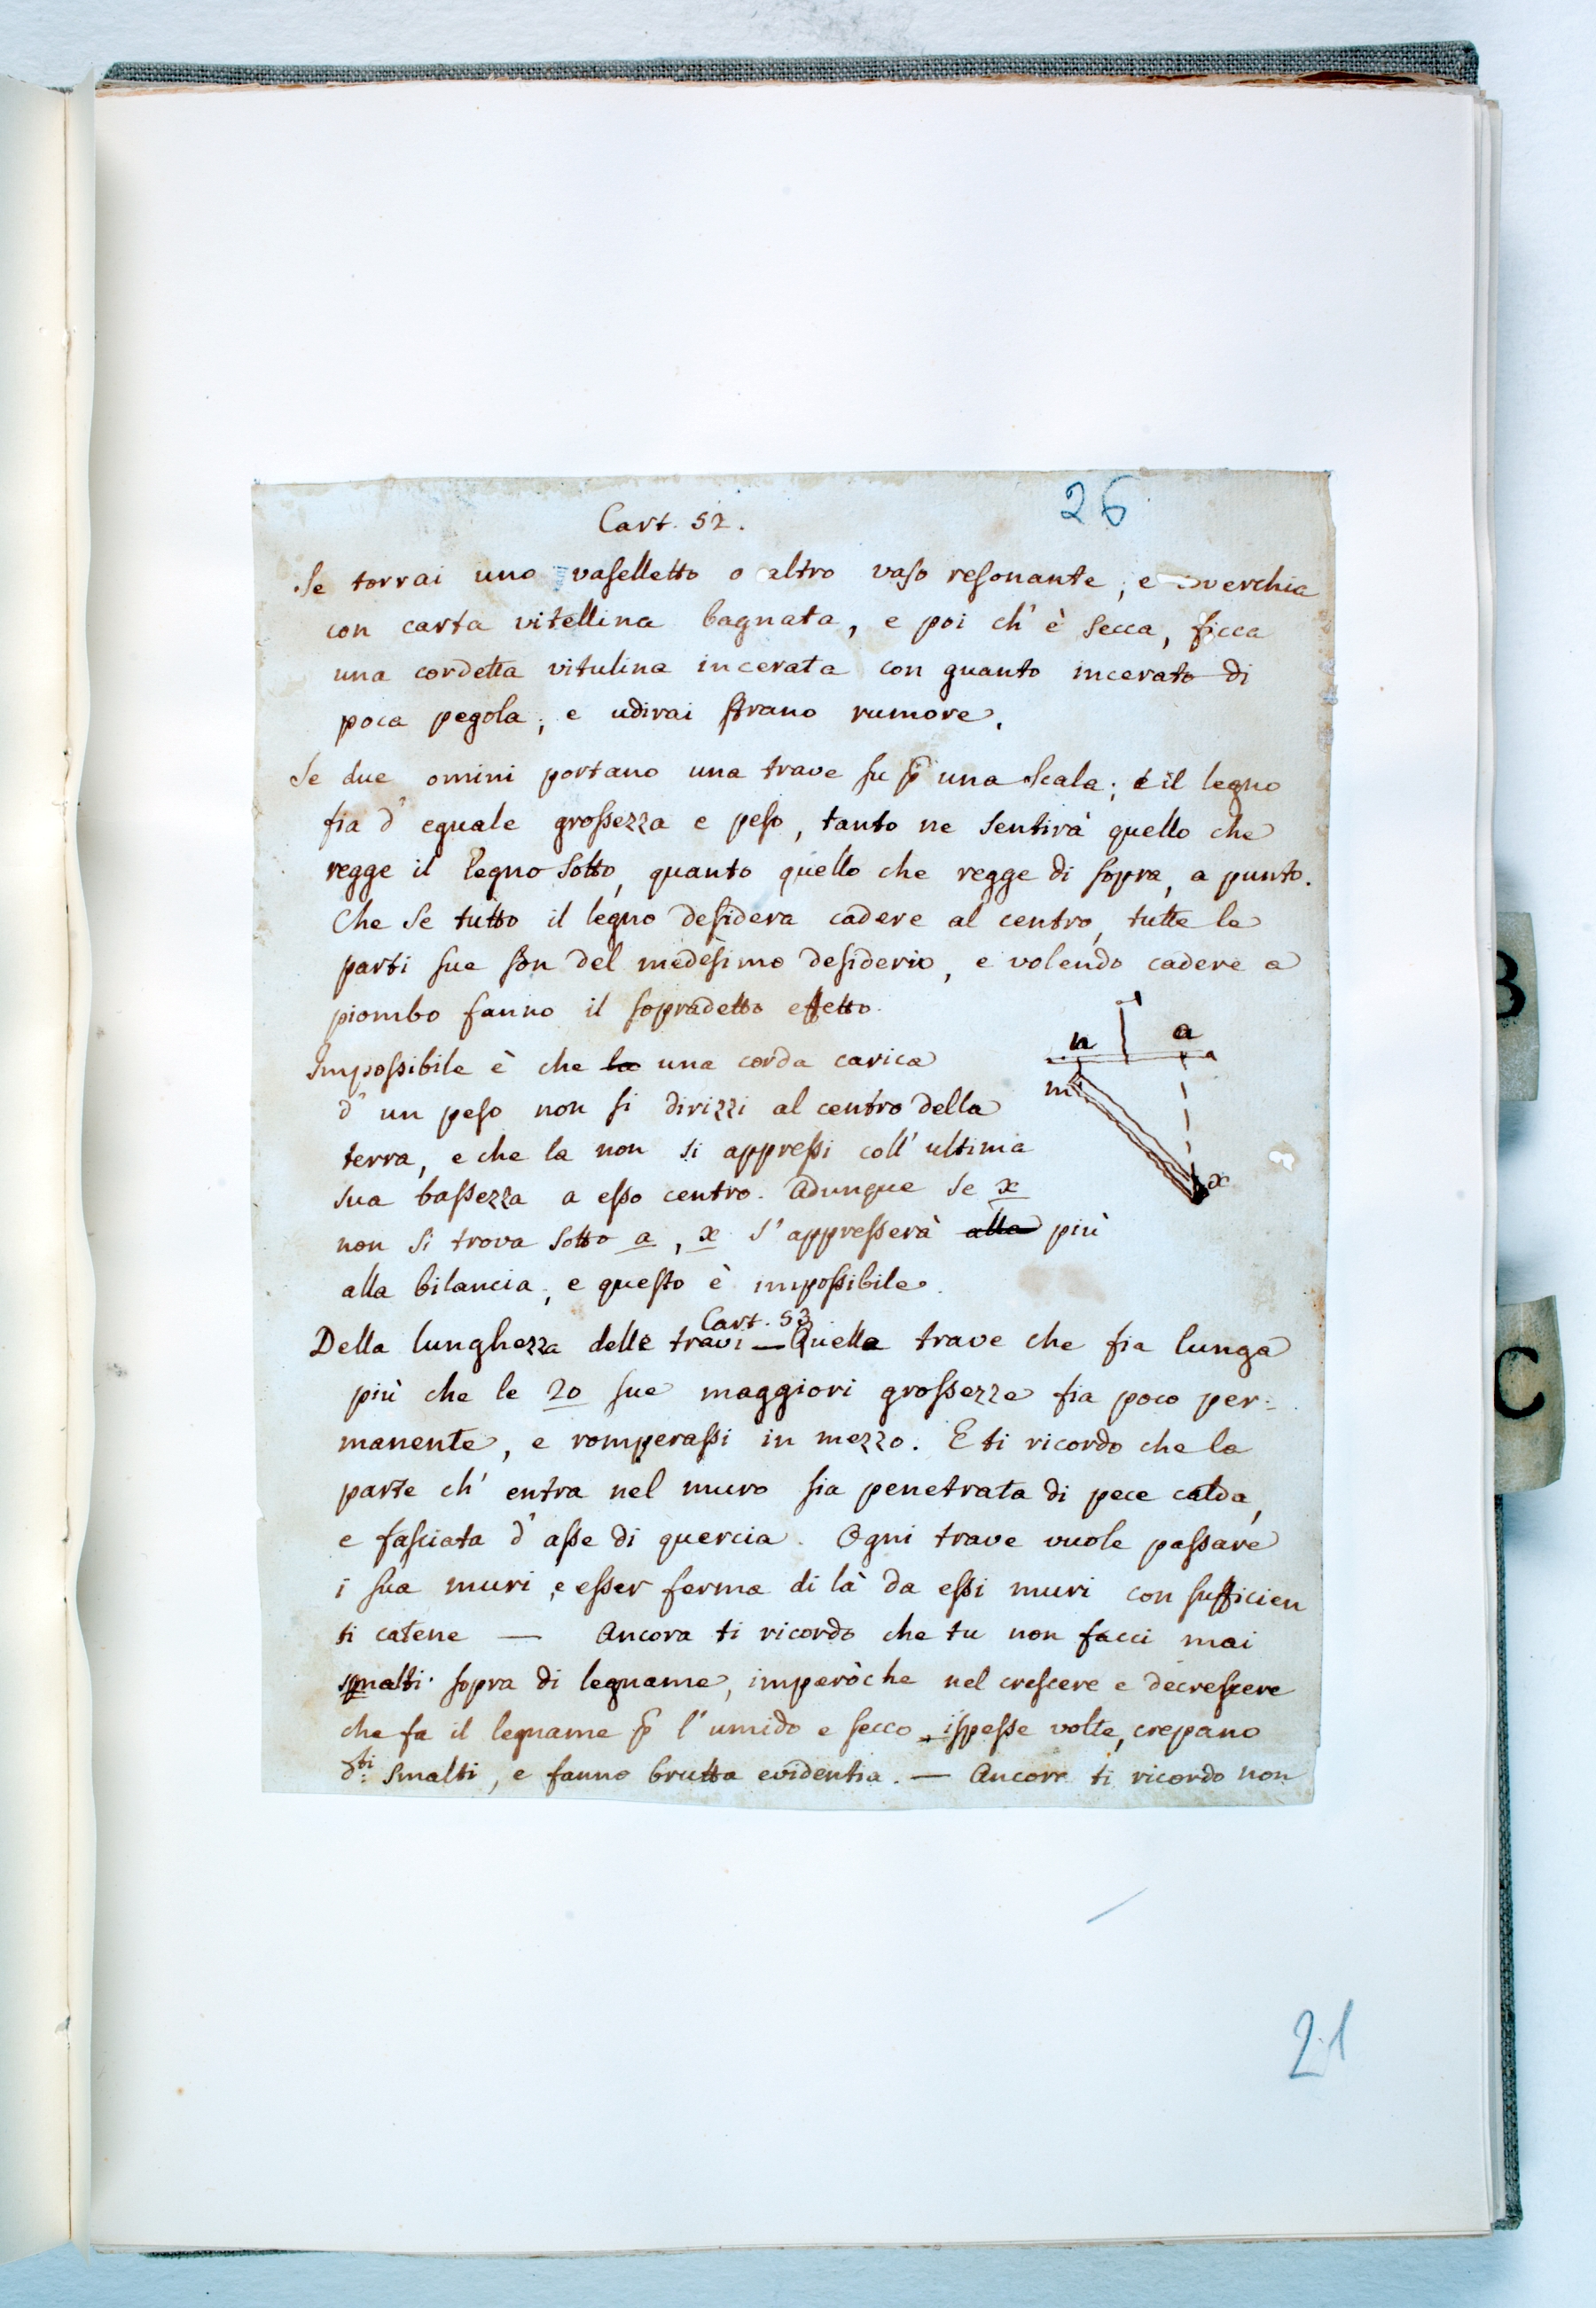 26
Cart. 52.
Se torrai uno vaselletto o altro vaso resonante, e overchia
con carta vitellina bagnata, e poi ch' è secca, ficca
una cordetta vitulina incerata con guanto incerato di
poca pegola; e udirai strano rumore.
Se due omini portano una trave su p una scala; e il legno
fia d' eguale grossezza e peso, tanto ne sentirà quello che
regge il legno sotto, quanto quello che regge di sopra, a punto.
Che se tutto il legno desidera cadere al centro, tutte le
parti sue son del medesimo desiderio, e volendo cadere a
piombo fanno il sopradetto effetto.
Impossibile è che la una corda carica
d' un peso non si dirizzi al centro della
terra, e che la non si appressi coll' ultima
sua bassezza a esso centro. Adunque se x
non si trova sotto a, x s' appresserà alla più
alla bilancia, e questo è impossibile.
n a
m
x
Cart. 53
Della lunghezza delle travi — Quella trave che fia lunga
più che le 20 sue maggiori grossezze fia poco per=
manente, e romperassi in mezzo. E ti ricordo che la
parte ch' entra nel muro sia penetrata di pece calda,
e fasciata d' asse di quercia. Ogni trave vuole passare
i sua muri, e esser ferma di là da essi muri con sufficien
ti catene — Ancora ti ricordo che tu non facci mai
smalti sopra di legname, imperòche nel crescere e decrescere
che fa il legname p l' umido e secco, ispesse volte, crepano
dti smalti, e fanno brutta evidentia. — Ancora ti ricordo non
21
B
C